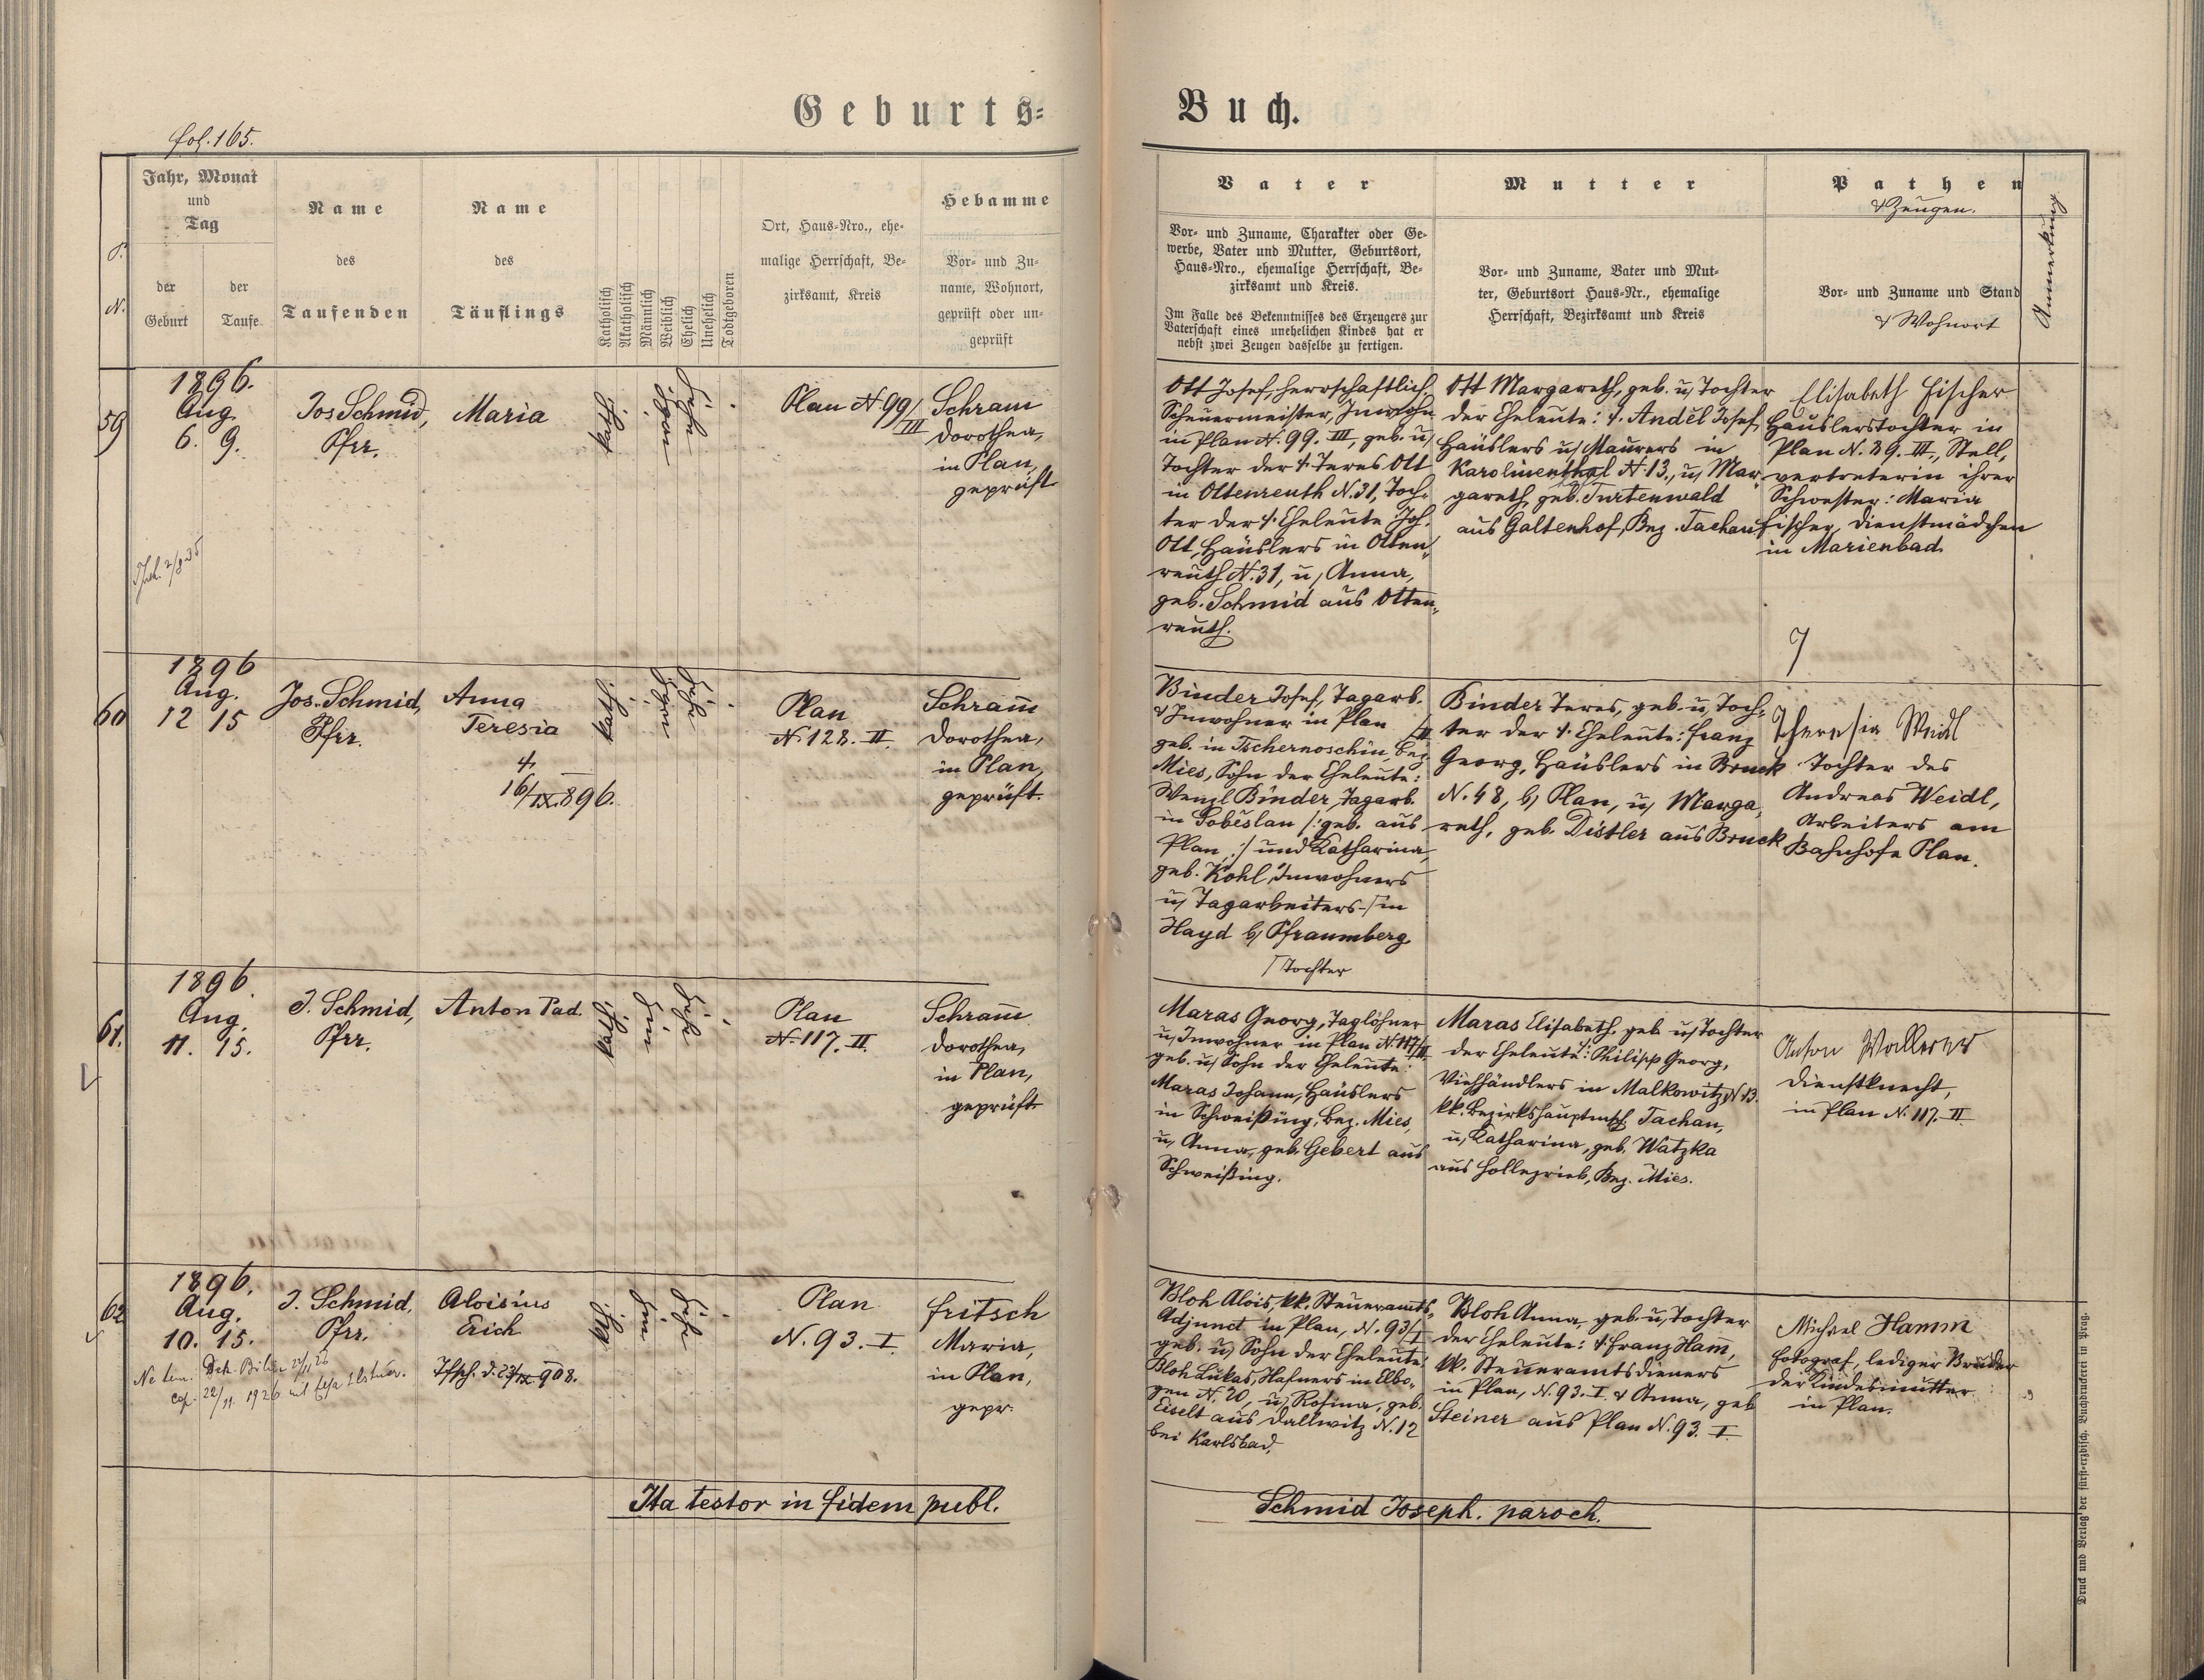 Geburts=
Buch.
fol. 165.
P. N.
Jahr, Monat
und
Tag
der
Geburt
der
Taufe
Name
des
Taufenden
Name
des
Täuflings
Katholisch
Akatholisch
Männlich
Weiblich
Ehelich
Unehelich
Todtgeboren
Ort, Haus=Nro., ehe=
malige Herrschaft, Be=
zirksamt, Kreis
Hebamme
Vor= und Zu=
name, Wohnort,
geprüft oder un=
geprüft
Vater
Vor= und Zuname, Charakter oder Ge=
werbe, Vater und Mutter, Geburtsort,
Haus=Nro., ehemalige Herrschaft, Be=
zirksamt und Kreis.
Im Falle des Bekenntnisses des Erzeugers zur
Vaterschaft eines unehelichen Kindes hat er
nebst zwei Zeugen dasselbe zu fertigen.
Mutter
Vor= und Zuname, Vater und Mut=
ter, Geburtsort Haus=Nr., ehemalige
Herrschaft, Bezirksamt und Kreis
Pathen
& Zeugen.
Vor= und Zuname und Stand
& Wohnort
Anmerkung
59
1896.
Aug
6. 9.
Jos Schmid,
Pfrr.
Maria
kath.
Plan N. 99/III
Schram
Dorothea,
in Plan,
geprüft
Ott Josef, herrschaftlich.
Scheuermeister, Inwohn
in Plan N. 99. III, geb. u/
Tochter der † Teres Ott
in Ottenreuth N. 31, Toch=
ter der †. Eheleute Joh.
Ott, Häuslers in Otten„
reuth N. 31, u/ Anna,
geb. Schmid aus Otten„
reuth.
Ott Margareth, geb. u/ Tochter
der Eheleute: †. Anděl Josef,
Häuslers u/ Maurers in
Karolinenthal N. 13., u/ Mar„
gareth, geb. Turtenwald
aus Galtenhof, Bez. Tachau
Elisabeth Fischer
Häuslerstochter in
Plan N. 89. III., Stell„
vertreterin ihrer
Schwester: Maria
Fischer, Dienstmädchen
in Marienbad.
60
1896
Aug.
12 15
Jos. Schmid,
Pfrr.
Anna
Teresia
†
16/IX. 896.
kath.
Plan
N. 128. II.
Schram̄
Dorothea,
in Plan,
geprüft.
Binder Josef, Tagarb.
& Inwohner in Plan /II
geb. in Tschernoschin, Bez
Mies, Sohn der Eheleute:
Wenzl Binder, Tagarb.
in Doběslau /: geb. aus
Plan, :/ und Katharina,
geb. Kohl, Inwohners
u/ Tagarbeiters-/ in
Hayd b/ Pfraumberg.
/ Tochter
Binder Teres, geb. u/ Toch=
ter der †. Eheleute: Franz
Georg, Häuslers in Bruck
N. 48, b/ Plan, u/ Marga„
reth, geb. Distler aus Bruck
Theresia Weidl
Tochter des
Andreas Weidl,
Arbeiters am
Bahnhofe Plan.
61.
1896.
Aug.
11. 15.
J. Schmid,
Pfrr.
Anton Pad.
kath.
Plan
N. 117. II.
Schram̄
Dorothea,
in Plan,
geprüft
Maras Georg, Taglöhner
u/ Inwohner in Plan N. 117/II
geb. u/ Sohn der Eheleute:
Maras Johann, Häuslers
in Schweißing, Bez. Mies,
u/ Anna, geb. Gebert aus
Schweißing.
Maras Elisabeth, geb u/ Tochter
der Eheleute: Philipp Georg,
Viehhändlers in Malkowitz, N. 13.
kk. Bezirkshauptmsch. Tachau,
u/ Katharina, geb. Watzka
aus Hollezrieb, Bez. Mies.
Anton
Dienstknecht,
in Plan N. 117. II
62
1896.
Aug.
10. 15.
J. Schmid,
Pfrr.
Aloisius
Erich
kth.
Plan
N. 93. I.
Fritsch
Maria,
in Plan,
gepr.
Bloh Alois, kk. Steueramts=
Adjunct in Plan, N. 93/I
geb. u/ Sohn der Eheleute:
Bloh Lukas, Hafners in Elbo„
gen N. 20, u/ Rosina, geb.
Eiselt aus Dallwitz N. 12
bei Karlsbad.
Bloh Anna, geb. u/ Tochter
der Eheleute: † Franz Ham̄,
kk. Steueramtsdieners
in Plan, N. 93. I & Anna, geb
Steiner aus Plan N. 93. I.
Michael Hamm
Fotograf, lediger Bruder
der Kindesmutter
in Plan.
Ita testor in fidem publ.
Schmid Joseph. paroch.
Druck und Verlag der fürst=erzbisch. Buchdruckerei in Prag.